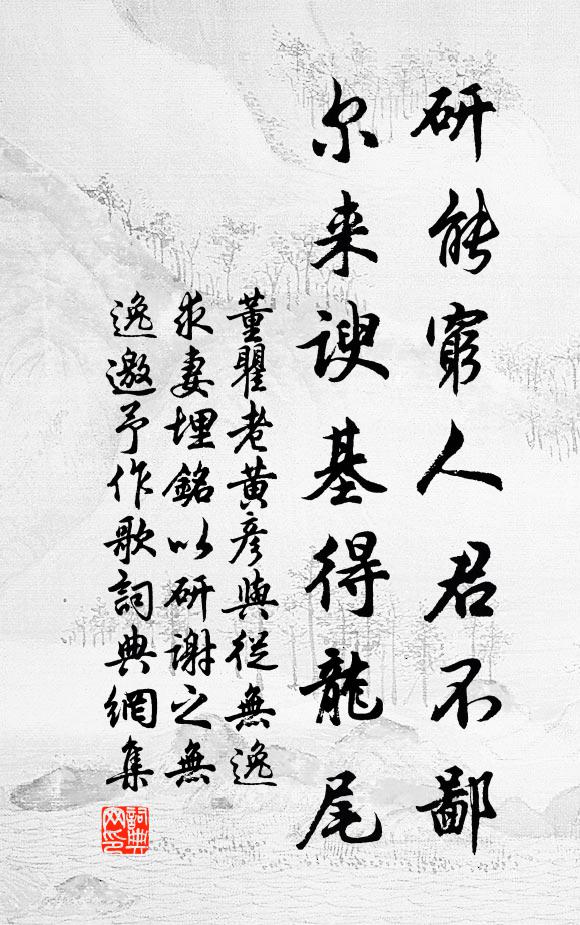 研能窮人君不鄙
尔来謏基得龍尾
董瞿老黃彦與從無逸
求妻埋銘以研謝之無
逸邀予作歌詞典網集
詞典
网印